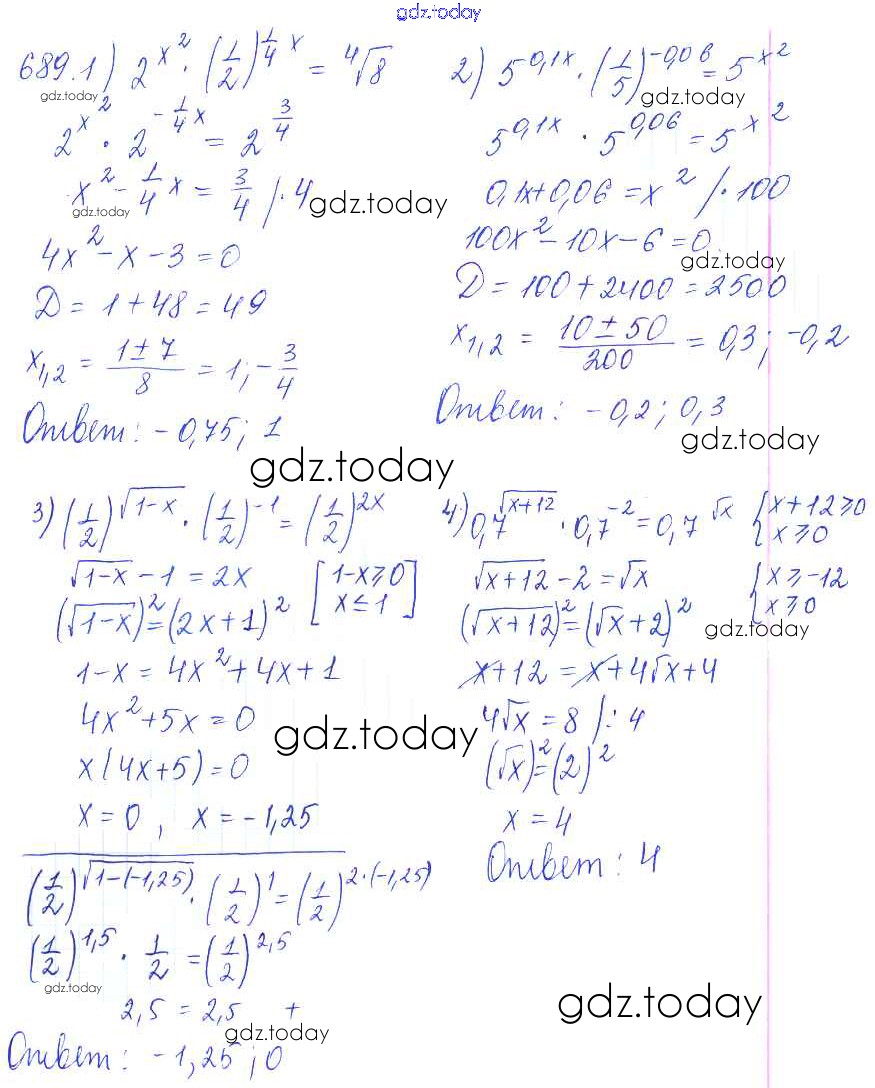 gdz.today
689.1) 2^{x^2} · (1/2)^{1/4 x} = ⁴√8
gdz.today
2^{x^2} · 2^{-1/4 x} = 2^{3/4}
x^2 - 1/4 x = 3/4 /·4
gdz.today
gdz.today
4x^2 - x - 3 = 0
D = 1 + 48 = 49
x_{1,2} = (1 ± 7)/8 = 1; -3/4
Ответ: -0,75; 1
2) 5^{0,1x} · (1/5)^{-0,06} = 5^{x^2}
gdz.today
5^{0,1x} · 5^{0,06} = 5^{x^2}
0,1x + 0,06 = x^2 /·100
100x^2 - 10x - 6 = 0
gdz.today
D = 100 + 2400 = 2500
x_{1,2} = (10 ± 50)/200 = 0,3; -0,2
Ответ: -0,2; 0,3
gdz.today
gdz.today
3) (1/2)^{√(1-x)} · (1/2)^{-1} = (1/2)^{2x}
√(1-x) - 1 = 2x [1-x ⩾ 0
(√(1-x))^2 = (2x+1)^2 x ≤ 1]
1-x = 4x^2 + 4x + 1
4x^2 + 5x = 0
gdz.today
x(4x+5) = 0
x = 0, x = -1,25
(1/2)^{√(1-(-1,25))} · (1/2)^1 = (1/2)^{2·(-1,25)}
(1/2)^{1,5} · 1/2 = (1/2)^{2,5}
gdz.today
2,5 = 2,5 +
gdz.today
Ответ: -1,25; 0
4) 0,7^{√(x+12)} · 0,7^{-2} = 0,7^{√x} {x+12 ⩾ 0
x ⩾ 0
√(x+12) - 2 = √x {x ⩾ -12
(√(x+12))^2 = (√x+2)^2 x ⩾ 0
gdz.today
x+12 = x+4√x+4
4√x = 8 /:4
(√x)^2 = (2)^2
x = 4
Ответ: 4
gdz.today